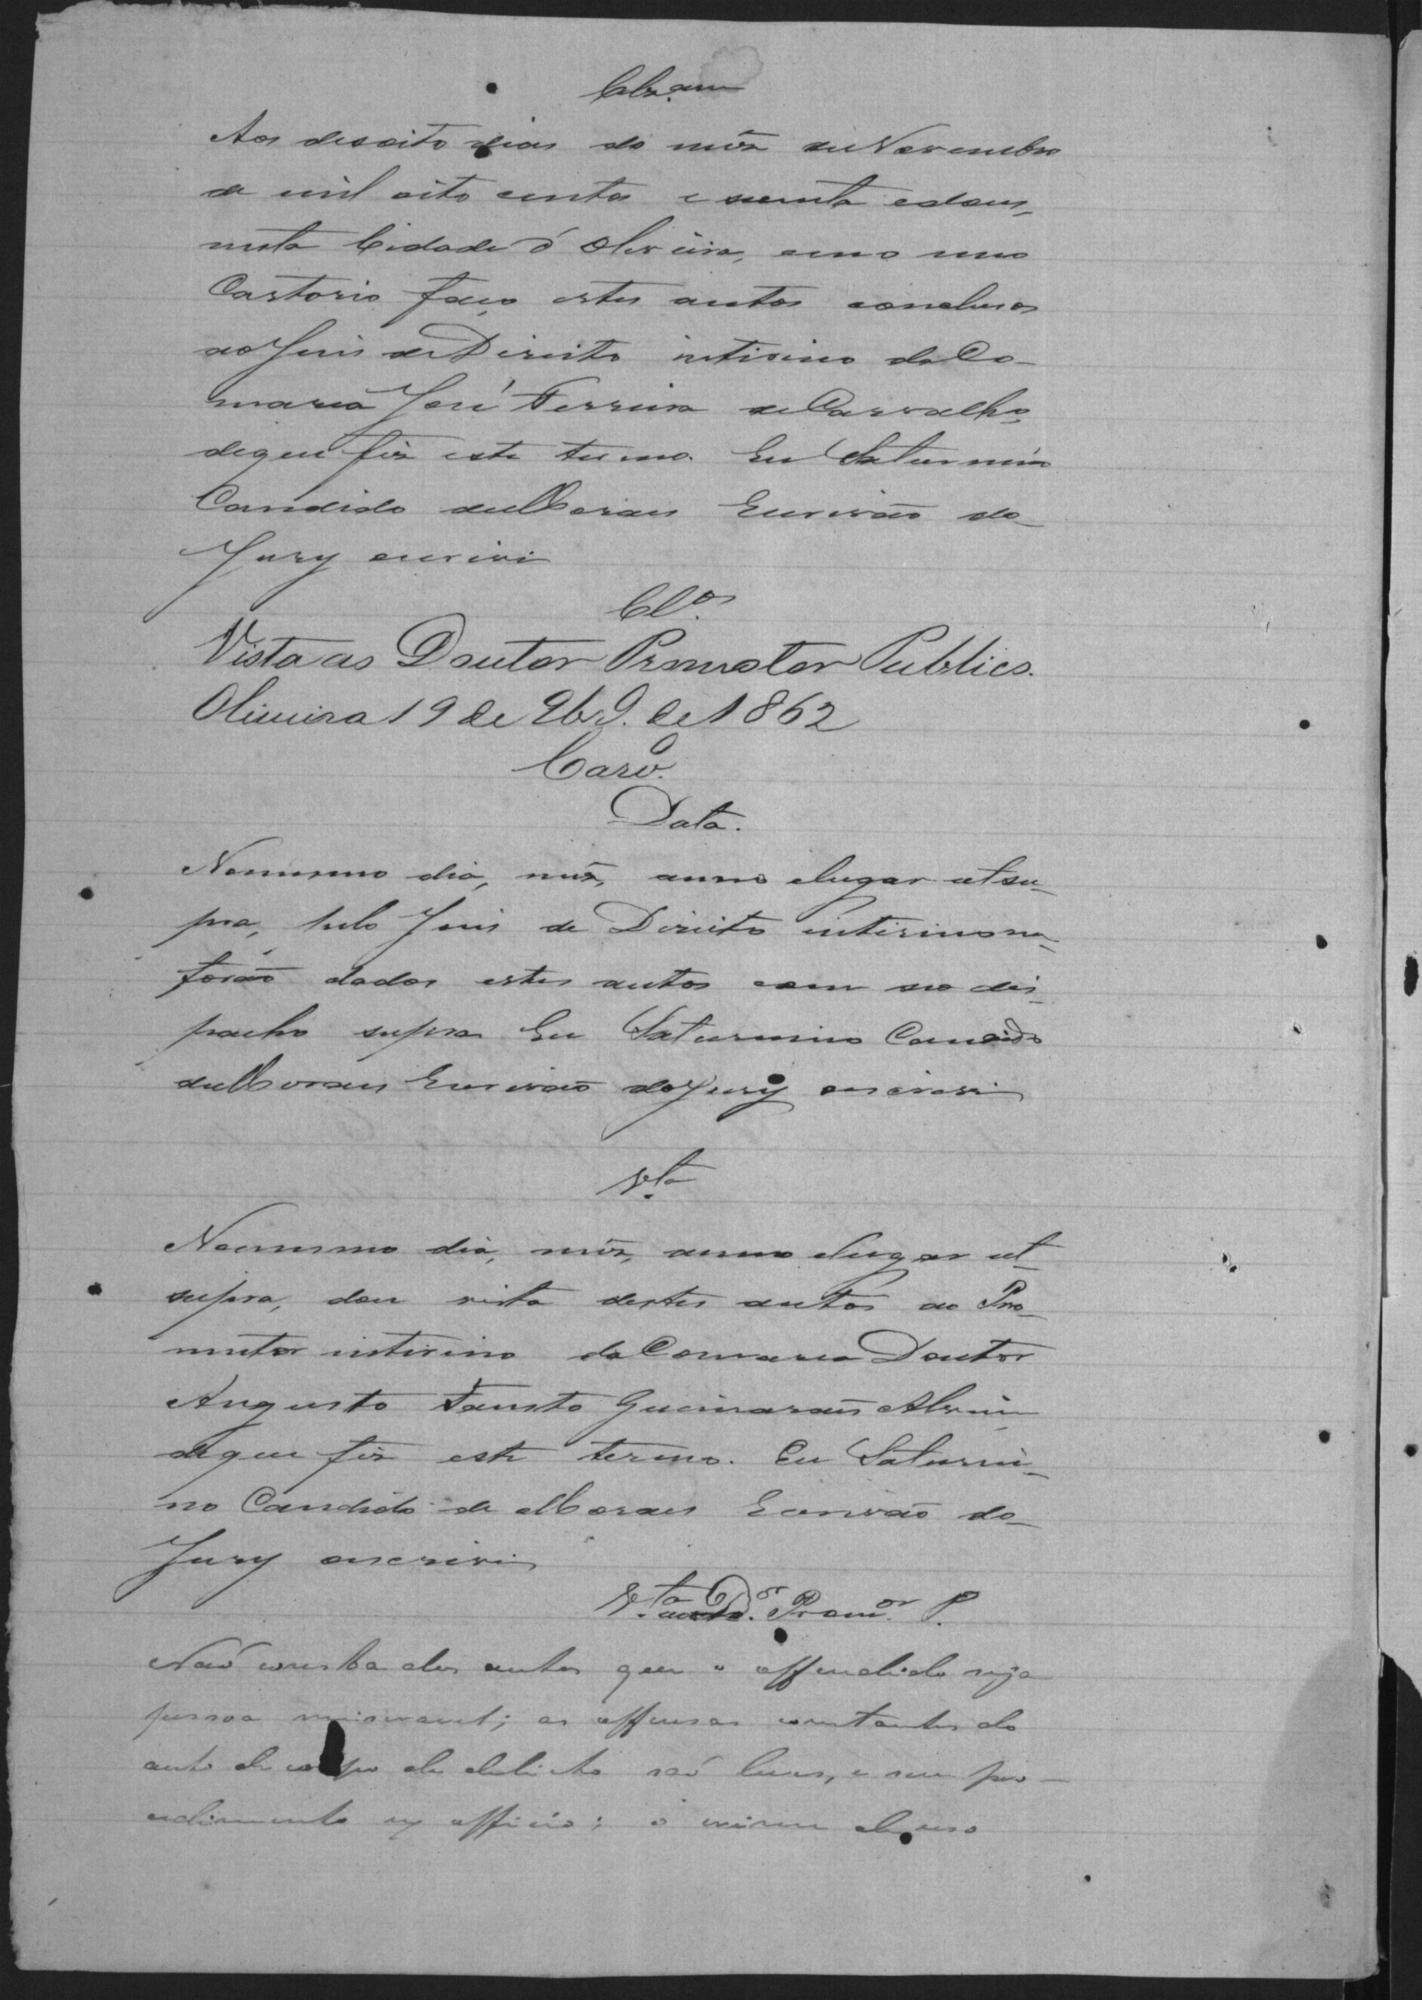 Clz.am
Aos desoito dias do mês de Novembro
de mil oito centos e secenta e dous,
nesta Cidade d' Oliveira, em o meo
Cartorio faço estes autos conclusos
ao Juis de Direito interino da Co-
marca José Ferreira de Carvalho,
de que fiz este termo. Eu Saturnino
Candido de Moraes Escrivão do
Jury escrivi
Cl.os
Vista ao Doutor Promotor Publico.
Oliveira 19 de 9br.o de 1862
Carv.o
Data.
No mesmo dia, mês, anno e lugar ut su-
pra, pelo Juis de Direito interino me
forão dados estes autos com seo des-
pacho supra Eu Saturnino Candido
de Moraes Escrivão do Jury escrivi
V.ta
No mesmo dia, mês, anno e lugar ut
supra, dou vista destes autos ao Pro-
mutor interino da Comarca Doutor
Augusto Fausto Guimarães Alvim
de que fiz este termo. Eu Saturni-
no Candido de Moraes Escrivão do
Jury escrivi
V.ta ao D.or Prom.or P.
Naõ consta dos autos que o offendido seja
pessoa miseravel; as offensas constantes do
auto de corpo de delicto saõ leves, e seu pro-
cedimento ex officio; o crime de uso